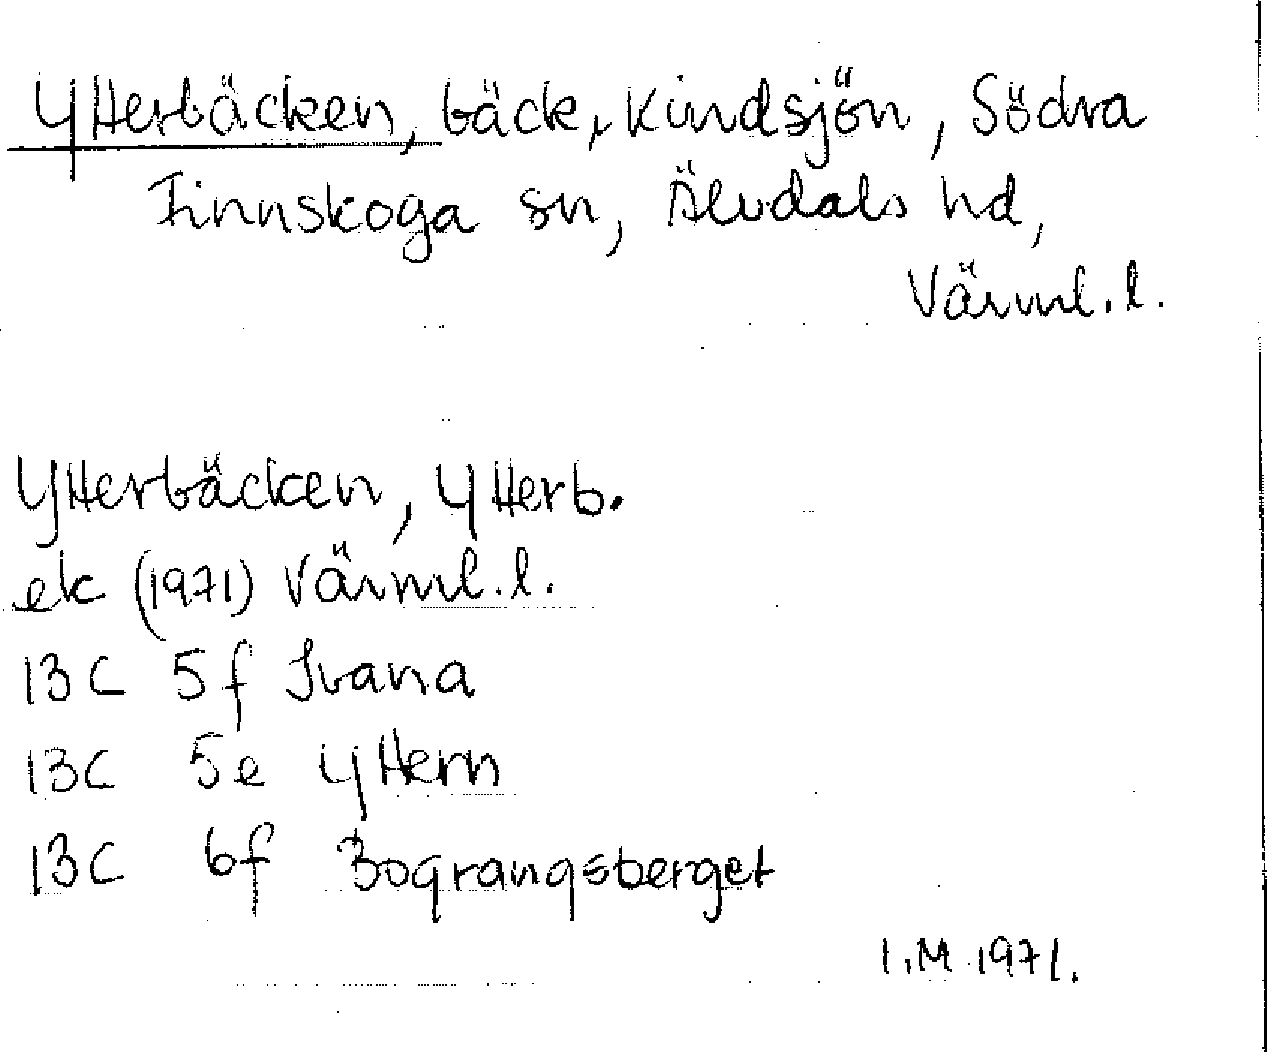 Ytterbäcken, bäck, Kindsjön, Södra
Finnskoga sn, Älvdals hd,
Värml. l.
Ytterbäcken, Ytterb.
ek (1971) Värml. l.
13C 5f Ivana
13C 5e Yttern
13C 6f Bograngsberget
I.M 1971.